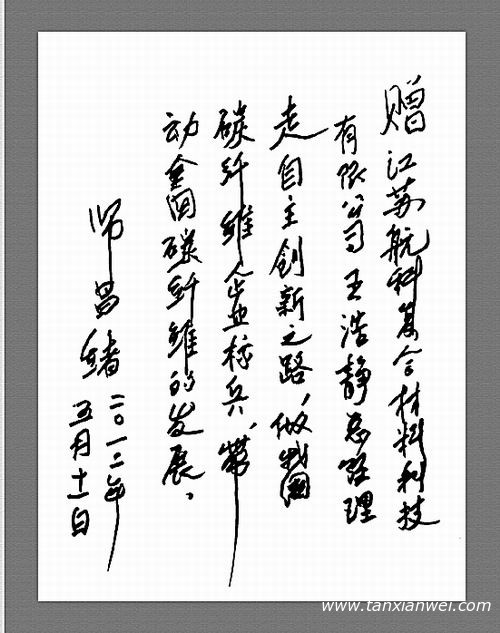 赠江苏航科复合材料科技
有限公司王浩静总经理
走自主创新之路，做我国
碳纤维企业标兵、带
动全国碳纤维的发展。
师昌绪
二〇一二年
五月十一日
www.tanxianwei.com